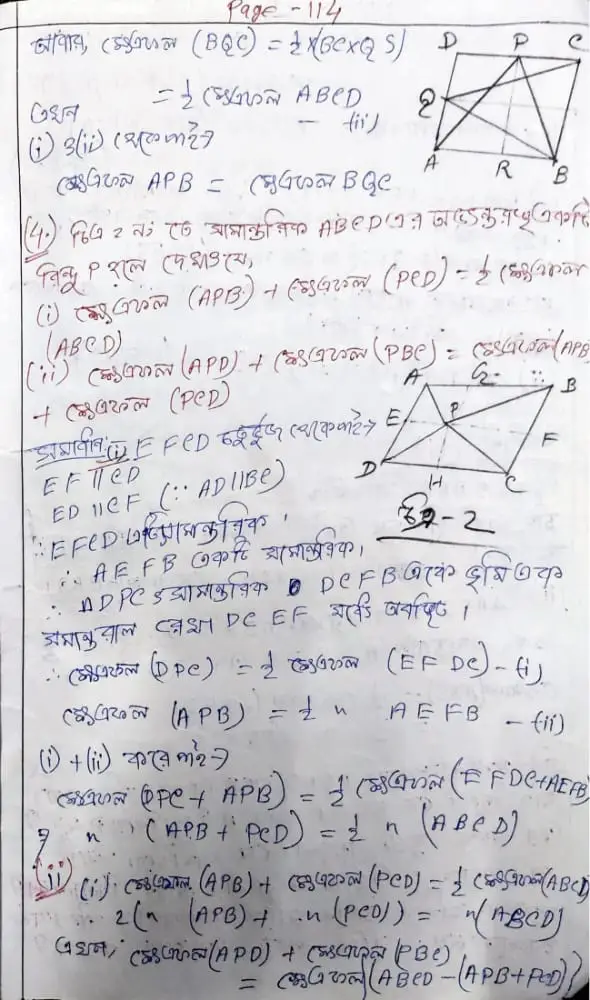 Page - 114
আবার, ক্ষেত্রফল (BQC) = ½ × (BC × QS)
= ½ ক্ষেত্রফল ABCD
এখন - (ii)
(i) ও (ii) থেকে পাই→
ক্ষেত্রফল APB = ক্ষেত্রফল BQC
D P C
Q
A R B
(4.) চিত্র 2 নং তে সামান্তরিক ABCD এর অভ্যন্তরস্থ একটি
বিন্দু P হলে দেখাও যে,
(i) ক্ষেত্রফল (APB) + ক্ষেত্রফল (PCD) = ½ ক্ষেত্রফল
(ABCD)
(ii) ক্ষেত্রফল (APD) + ক্ষেত্রফল (PBC) = ক্ষেত্রফল (APB)
+ ক্ষেত্রফল (PCD)
A G B
E P F
D H C
চিত্র - 2
সমাধান (i) EFCD চতুর্ভুজ থেকে পাই→
EF || CD
ED || CF (∵ AD || BC)
∴ EFCD একটি সামান্তরিক।
∴ AEFB একটি সামান্তরিক।
∴ ΔDPC ও সামান্তরিক DCFB একে ভূমি এক
সমান্তরাল রেখা DC EF মধ্যে অবস্থিত।
∴ ক্ষেত্রফল (DPC) = ½ ক্ষেত্রফল (EFDC) - (i)
ক্ষেত্রফল (APB) = ½ n AEFB - (ii)
(i) + (ii) করে পাই→
ক্ষেত্রফল (DPC + APB) = ½ ক্ষেত্রফল (EFDC + AEFB)
নু n (APB + PCD) = ½ n (ABCD)
(ii) (i) ক্ষেত্রফল (APB) + ক্ষেত্রফল (PCD) = ½ ক্ষেত্রফল (ABCD)
2(n (APB) + n (PCD)) = n (ABCD)
এখন, ক্ষেত্রফল (APD) + ক্ষেত্রফল (PBC)
= ক্ষেত্রফল {ABCD - (APB + PCD)}